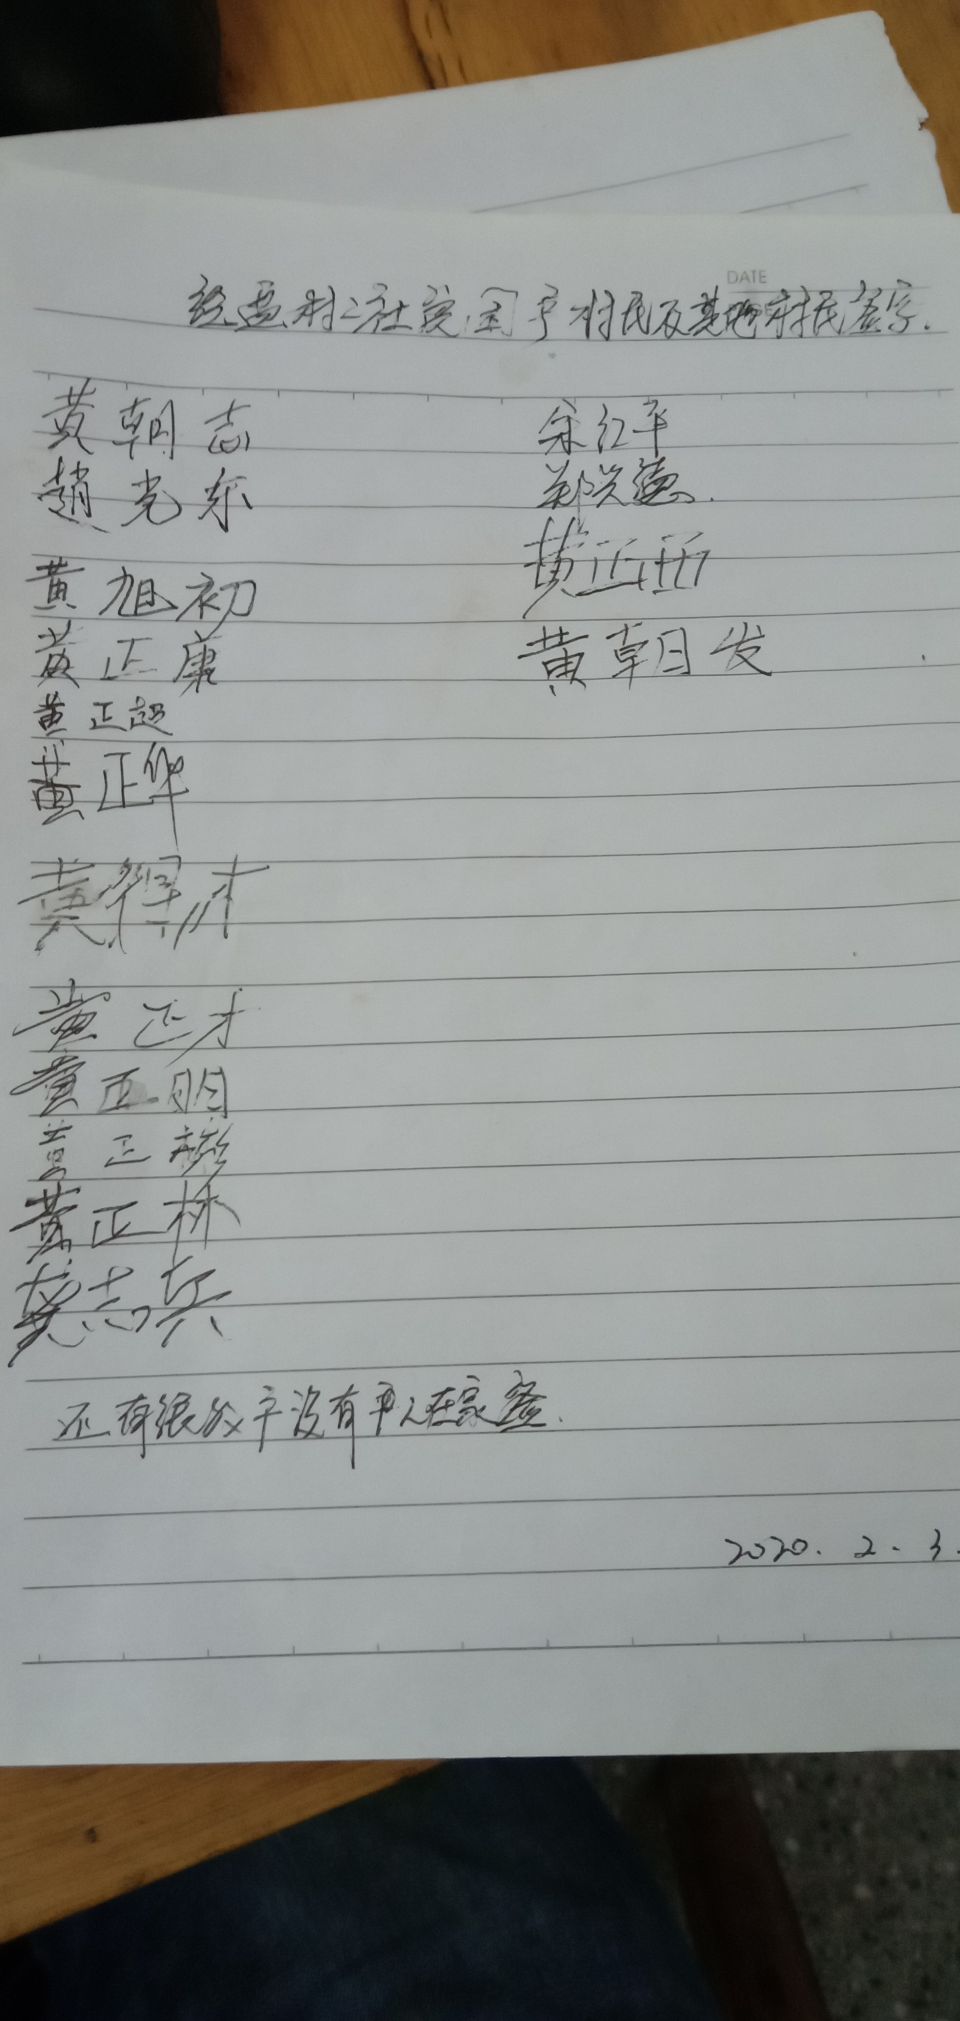 DATE
村二社贫困户村民及其他村民签字.
黄朝志
赵光东
黄旭初
黄正康
黄正超
黄正华
黄得才
黄正才
黄正明
黄正
黄正林
志兵
宋红平
郑兴德.
黄正西
黄朝发
还有很多户没有人在家签.
2020.2.3.